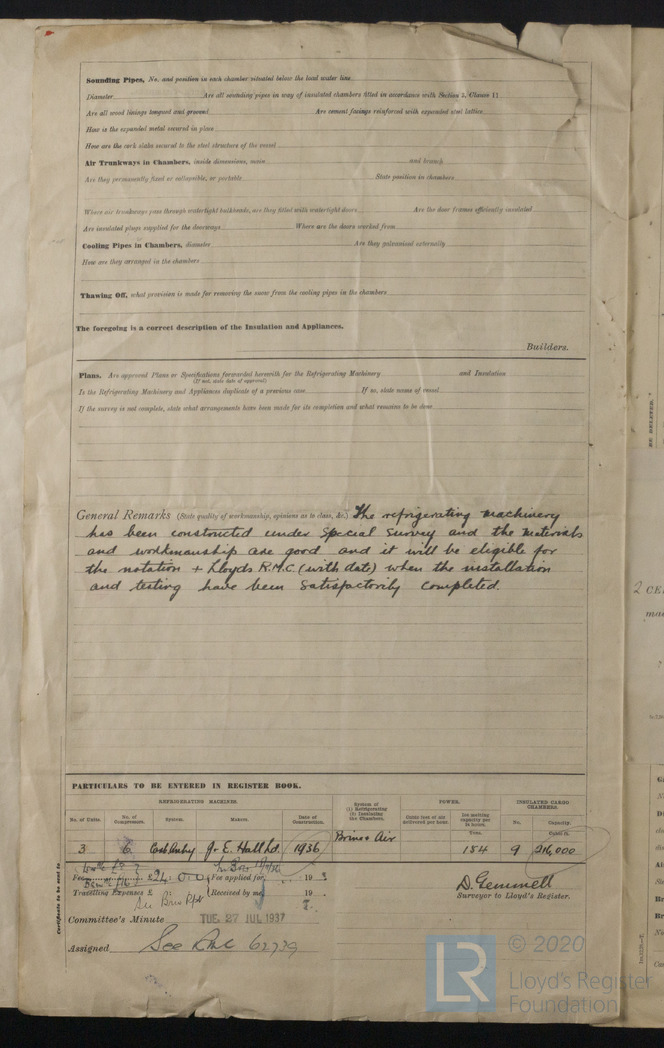 Sounding Pipes, No. and position in each chamber situated below the load water line
Diameter Are all sounding pipes in way of insulated chambers fitted in accordance with Section 3, Clause 11
Are all wood linings tongued and grooved Are cement facings reinforced with expanded steel lattice
How is the expanded metal secured in place
How are the cork slabs secured to the steel structure of the vessel
Air Trunkways in Chambers, inside dimensions, main and branch
Are they permanently fixed or collapsible, or portable State position in chambers
Where air trunkways pass through watertight bulkheads, are they fitted with watertight doors Are the door frames efficiently insulated
Are insulated plugs supplied for the doorways Where are the doors worked from
Cooling Pipes in Chambers, diameter Are they galvanised externally
How are they arranged in the chambers
Thawing Off, what provision is made for removing the snow from the cooling pipes in the chambers
The foregoing is a correct description of the Insulation and Appliances.
Builders.
Plans. Are approved Plans or Specifications forwarded herewith for the Refrigerating Machinery and Insulation
(If not, state date of approval)
Is the Refrigerating Machinery and Appliances duplicate of a previous case If so, state name of vessel
If the survey is not complete, state what arrangements have been made for its completion and what remains to be done
General Remarks (State quality of workmanship, opinions as to class, &c.) The refrigerating machinery
has been constructed under Special Survey and the materials
and workmanship are good and it will be eligible for
the notation + Lloyds R.M.C. (with date) when the installation
and testing have been satisfactorily completed.
PARTICULARS TO BE ENTERED IN REGISTER BOOK.
REFRIGERATING MACHINES. System of (1) Refrigerating (2) Insulating the Chambers. POWER. INSULATED CARGO CHAMBERS.
No. of Units. No. of Compressors. System. Makers. Date of Construction. Cubic feet of air delivered per hour. Ice melting capacity per 24 hours. No. Capacity.
Tons. Cubic ft.
3 6 J. & E. Hall Ld. 1936 Brine & Air 154 9 216,000
Fee £24 : 0 : 0 Fee applied for, 19
Travelling Expenses £ Received by me, 19
D. Gemmell
Surveyor to Lloyd's Register.
Committee's Minute TUE. 27 JUL 1937
Assigned See
Certificate to be sent to
© 2020
LR
Lloyd's Register
Foundation